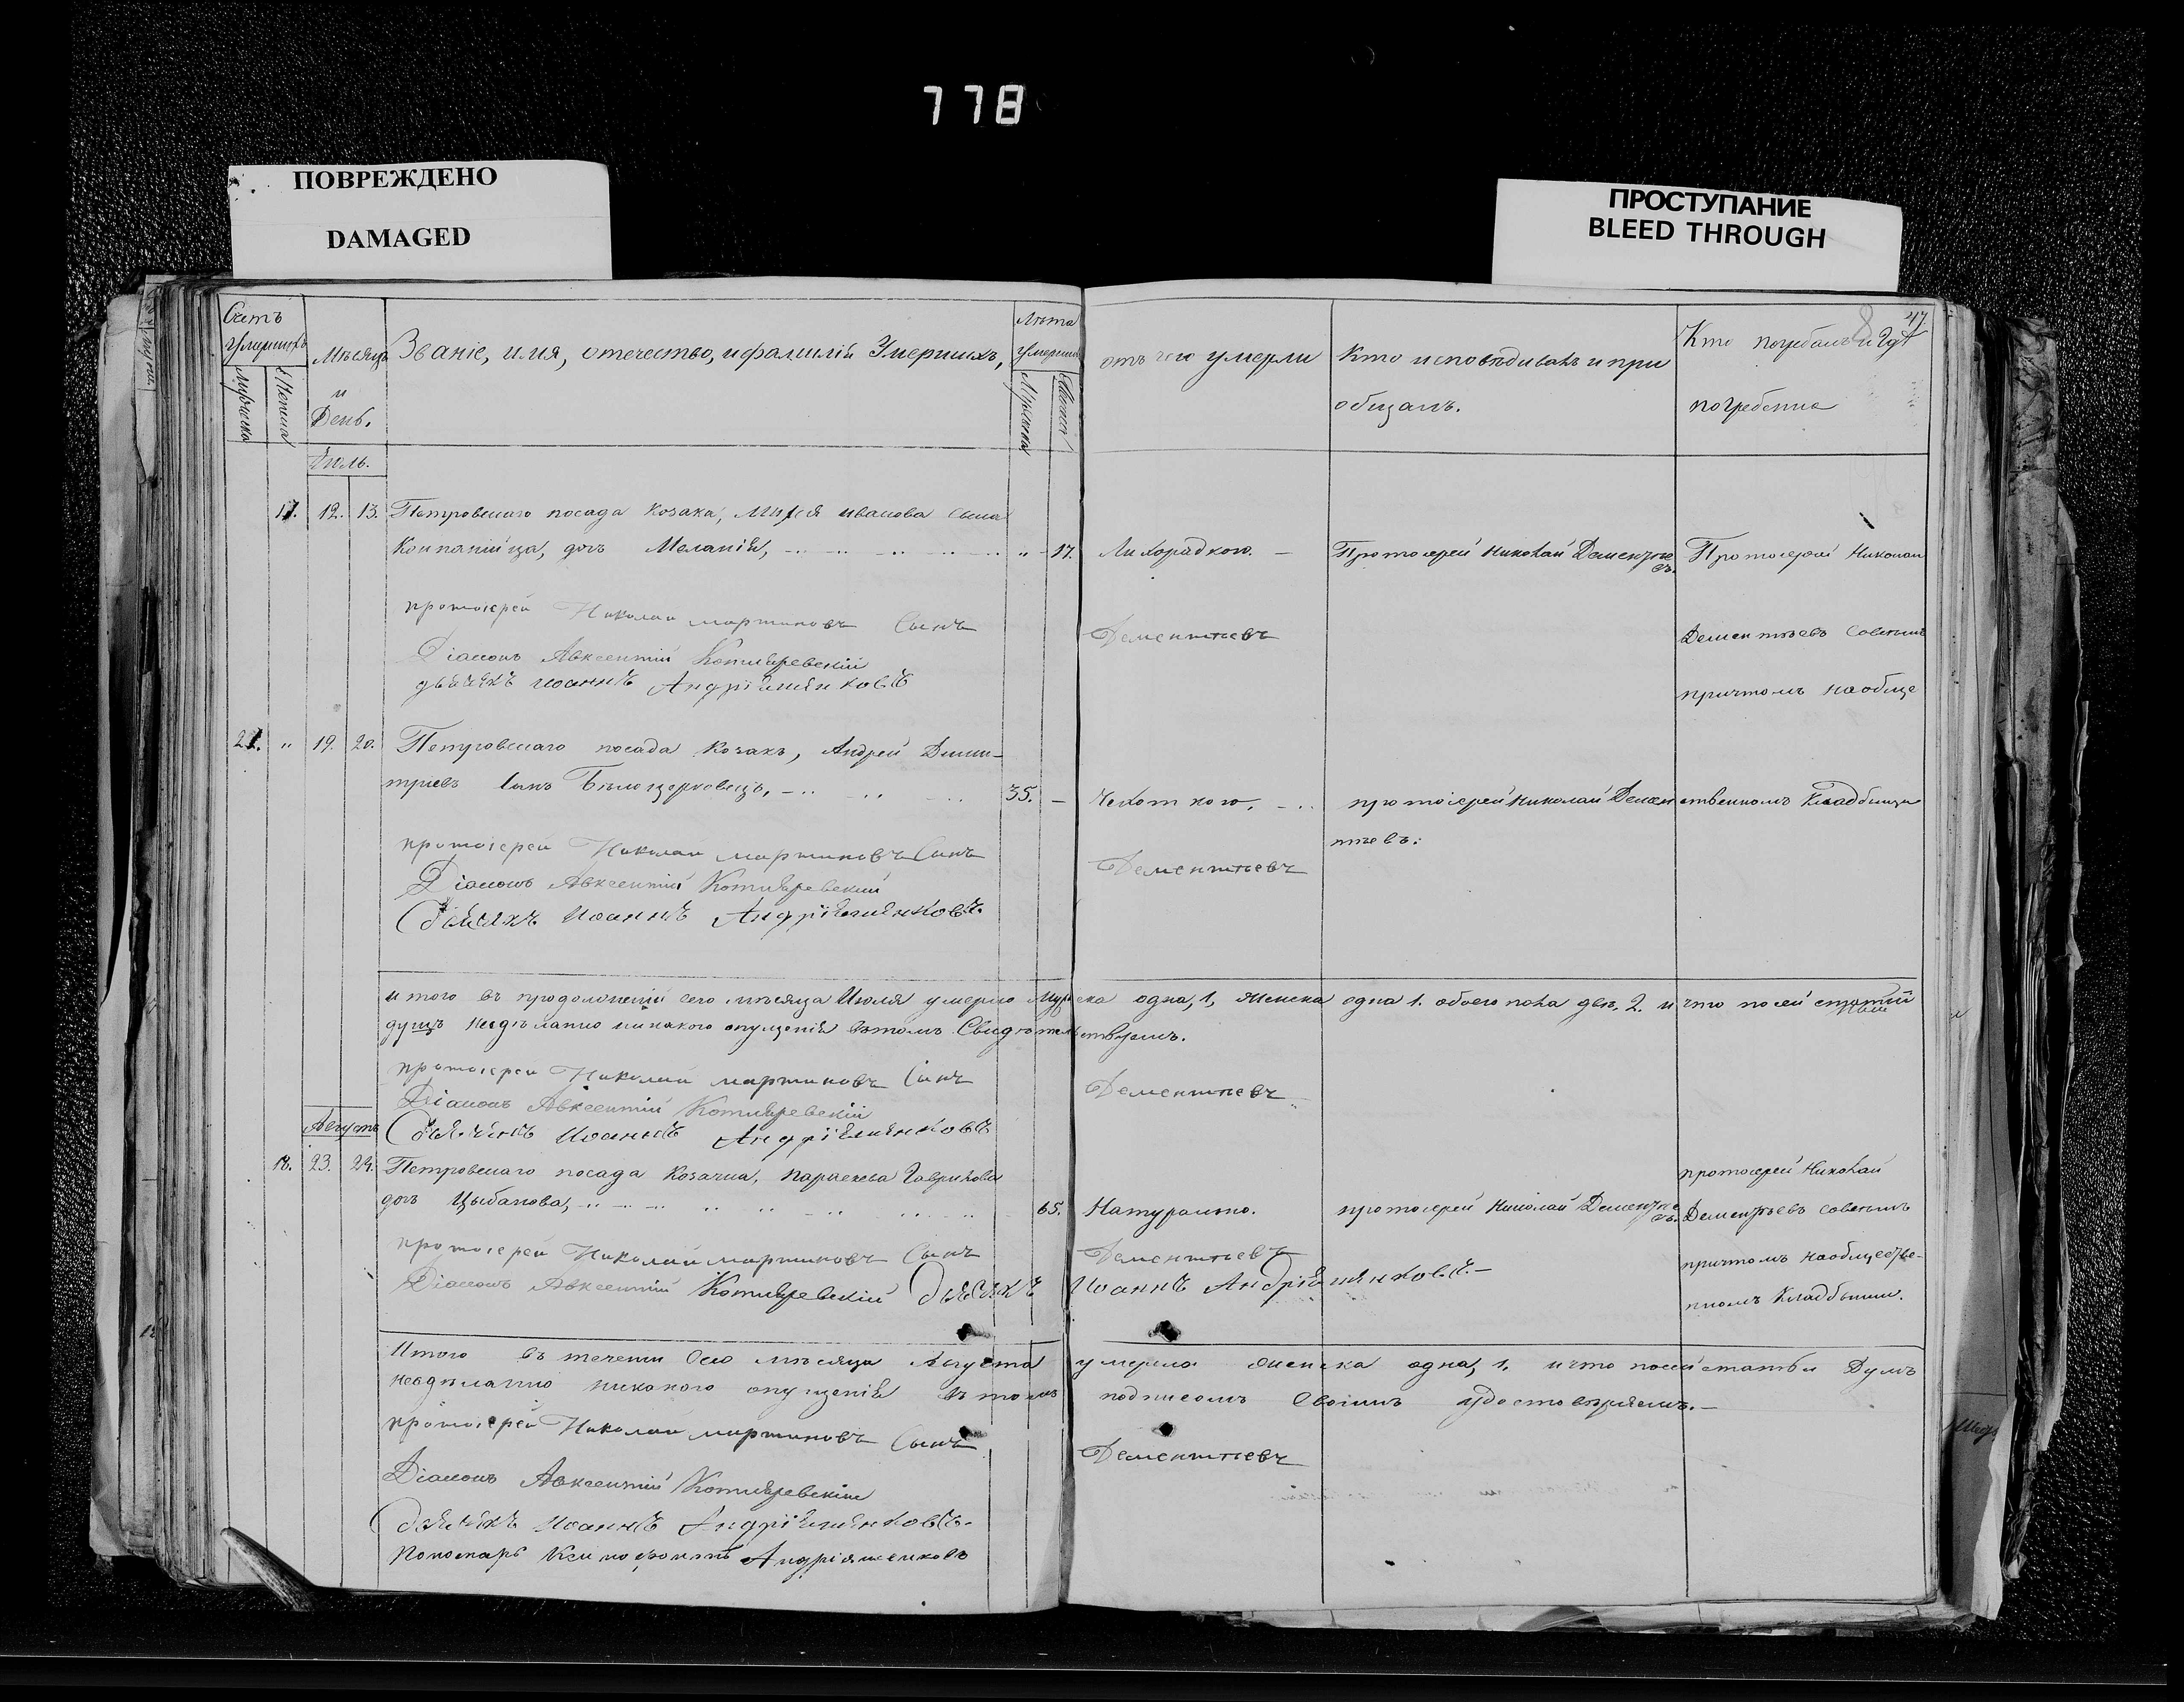 778
ПОВРЕЖДЕНО
DAMAGED
ПРОСТУПАНИЕ
BLEED THROUGH
Счетъ
умершихъ
Мужеска
Женска
Мѣсяцъ
и
День.
Званіе, имя, отечество, и фамилія Умершихъ,
Лѣта
умершихъ
Мужеска
Женска
отъ чего умерли
Кто исповѣдивалъ и при
общалъ.
47
Кто погребалъ и гдѣ
погребенна
Іюль.
17. 12. 13. Петровскаго посада Козака, иванова Сына
Компанійца, дочь Меланія, „ 17. Лихорадкою. Протоіерей Николай Дементье
въ. Протоіерей Николай
протоіерей Николай мартиновъ Сынъ Дементьевъ
Діаконъ Авксентій Котляревскій
дьячекъ иоаннъ Андріяшенковъ
Дементьевъ Совсѣмъ
причтомъ на обще
21. „ 19. 20. Петровскаго посада Козакъ, Андрей Дими-
тріевъ Сынъ Бѣлоцерковецъ, 35. Чехоткою. протоіерей Николай Демен
тьевъ: ственномъ Кладбищи
протоіерей Николай мартиновъ Сынъ Дементьевъ
Діаконъ Авксентій Котляревскій
дьячекъ Иоаннъ Андріяшенковъ.
итого въ продолженіи сего мѣсяца Июля умерло Мужеска одна, 1, Женска одна 1. обоего пола двѣ. 2. и что по сей статьи
душъ неедѣланно никакого опущенія вътомъ Свидѣтельствуемъ.
протоіерей Николай мартиновъ Сынъ Дементьевъ
Діаконъ Авксентій Котляревскій
дьячекъ Иоаннъ Андріяшенковъ
Августъ
18. 23. 24. Петровскаго посада Козачка, Параскева Гаврилова
дочь Цыбанова, 65. Натурально. протоіерей Николай Дементье
въ.
протоіерей Николай
Дементьевъ совсѣмъ
причтомъ наобществе-
нномъ Кладбищи.
протоіерей Николай мартиновъ Сынъ Дементьевъ
Діаконъ Авксентій Котляревскій дьячекъ Иоаннъ Андріяшенковъ.
Итого въ течении Сего мѣсяца Августа умерло женска одна, 1. и что посей статьи Душъ
неедѣланно никокого опущенія вътомъ подписомъ Своимъ удостовѣряемъ.
протоіерей Николай мартиновъ Сынъ Дементьевъ
Діаконъ Авксентій Котляревскій
дьячекъ Иоаннъ Андріяшенковъ.
Пономарь Ксенофонтъ Андріяшенковъ